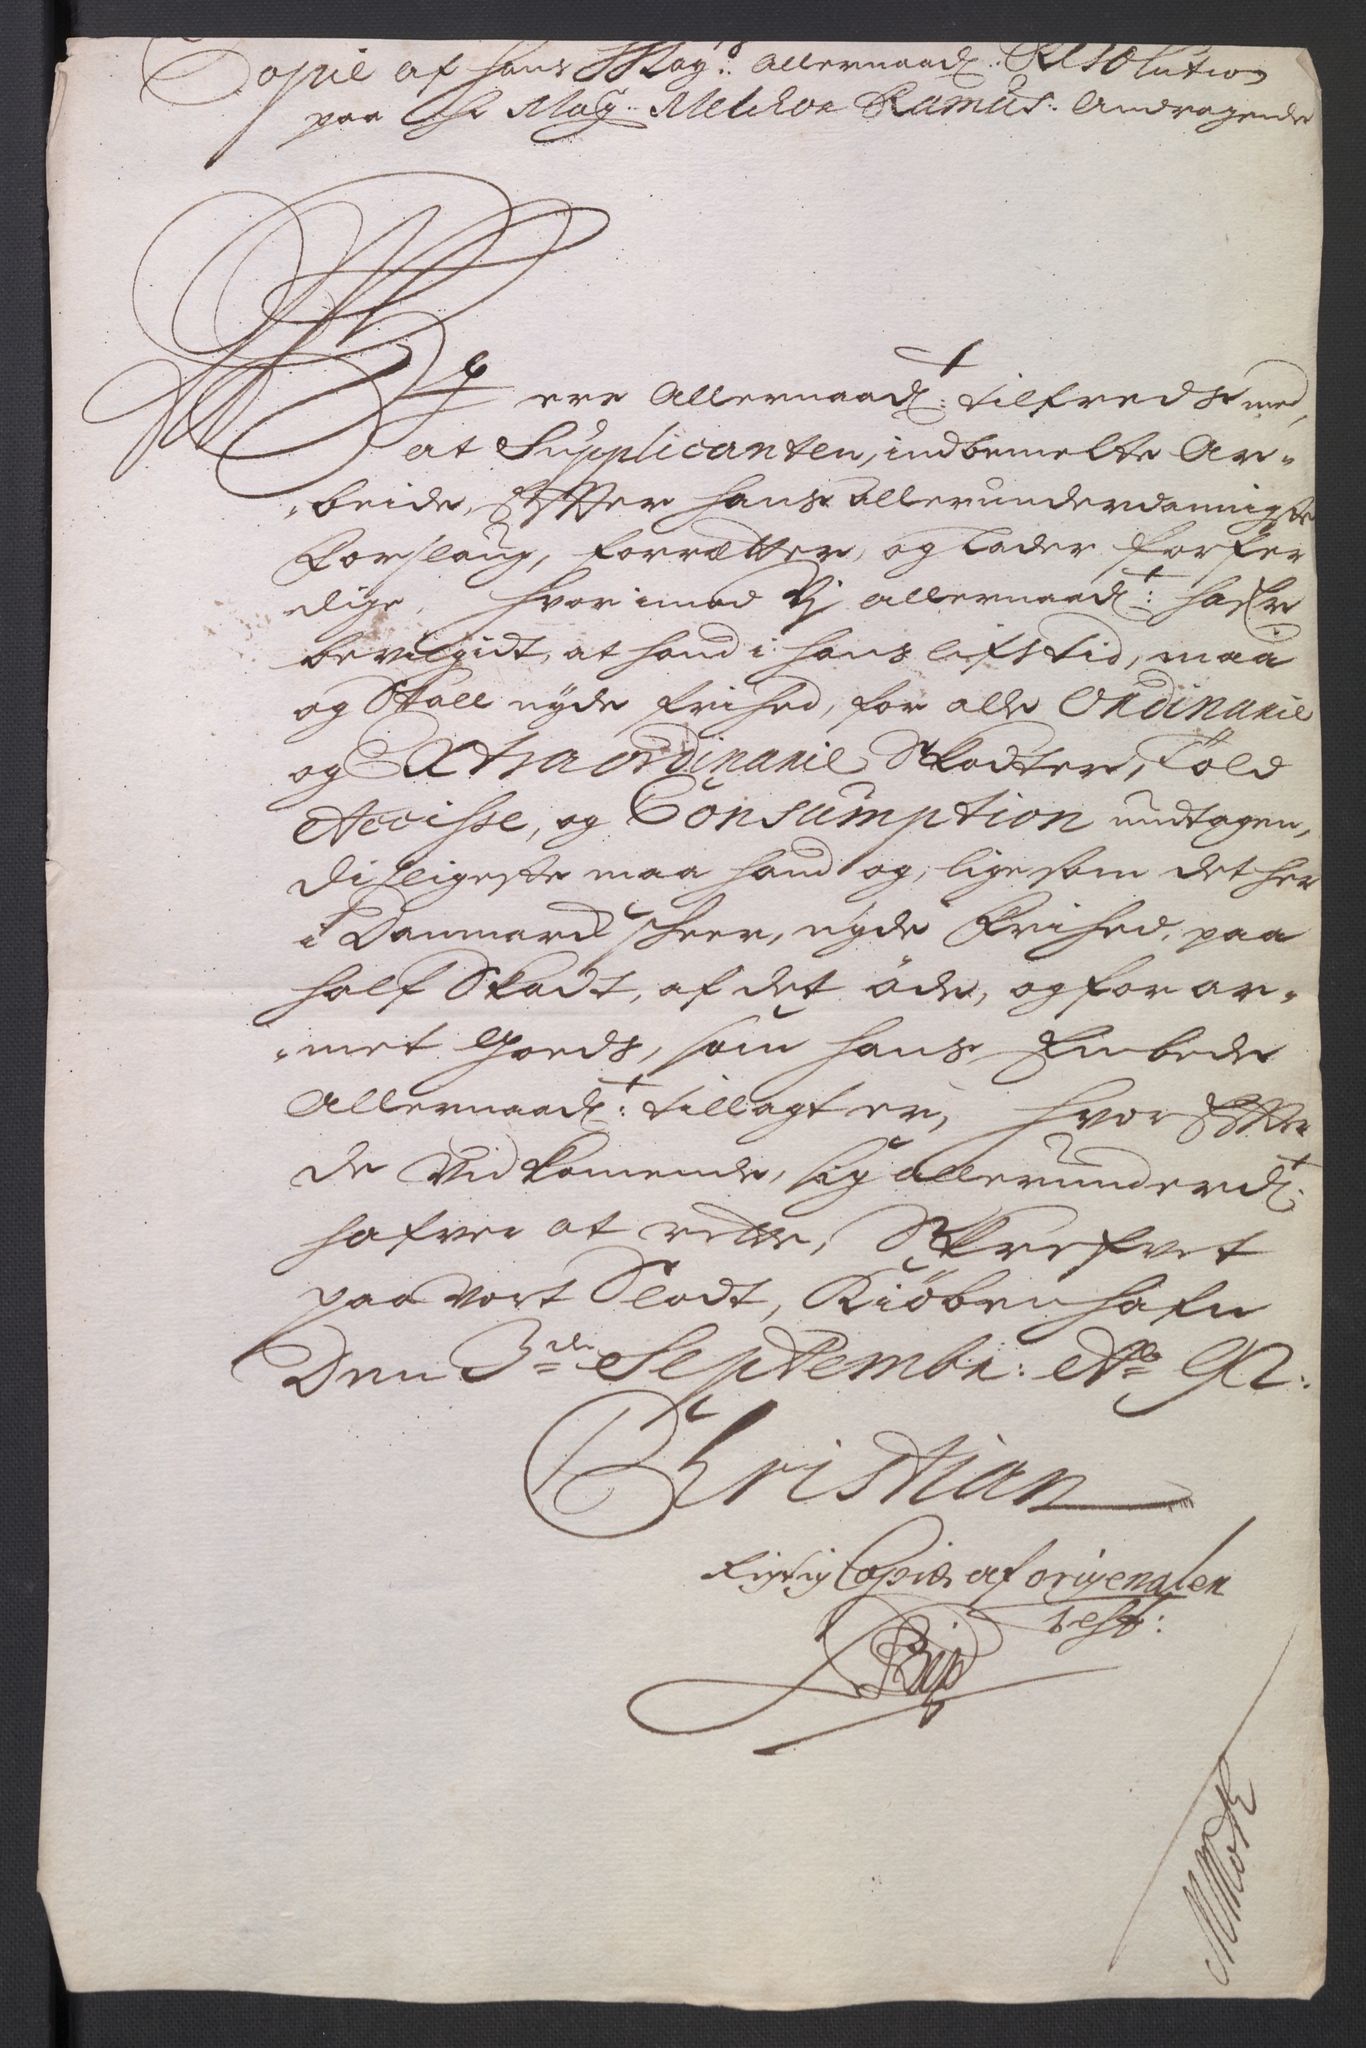 Copie af hans May:ts allernaad: Resolution
paa Hr Mag: Melchor Ramus: Andragende
Vj ere allernaad:t tilfreds med,
at Supplicanten, indbemelte Ar-
-beide, Efter hans allerunderdannigste
Forslaug, forrætter, og lader forfer
dige, hvorimod Vj allernaad:t hafr
bevilgidt, at hand i hans lifstid, maa
og skall nyde frihed, for alle Ordinarie
og Extraordinarie Skadter, Told
Accisse, og Consumption undtagen,
disligeste maa hand og, ligesom det her
i Danmarck scheer, nyde Frihed, paa
half Skadt, af det øde, og forar-
-met Goeds, som hans Embede
Allernaad:t tillagt er, hvor Efter
de Vidkommende, sig allerunderd:t
hafver at rette, Skrefvet
paa vort Slodt, Kiøbenhafn
Den 3de Septembr: Ao 92.
Christian
Rigtig Copie af origenalen
test: